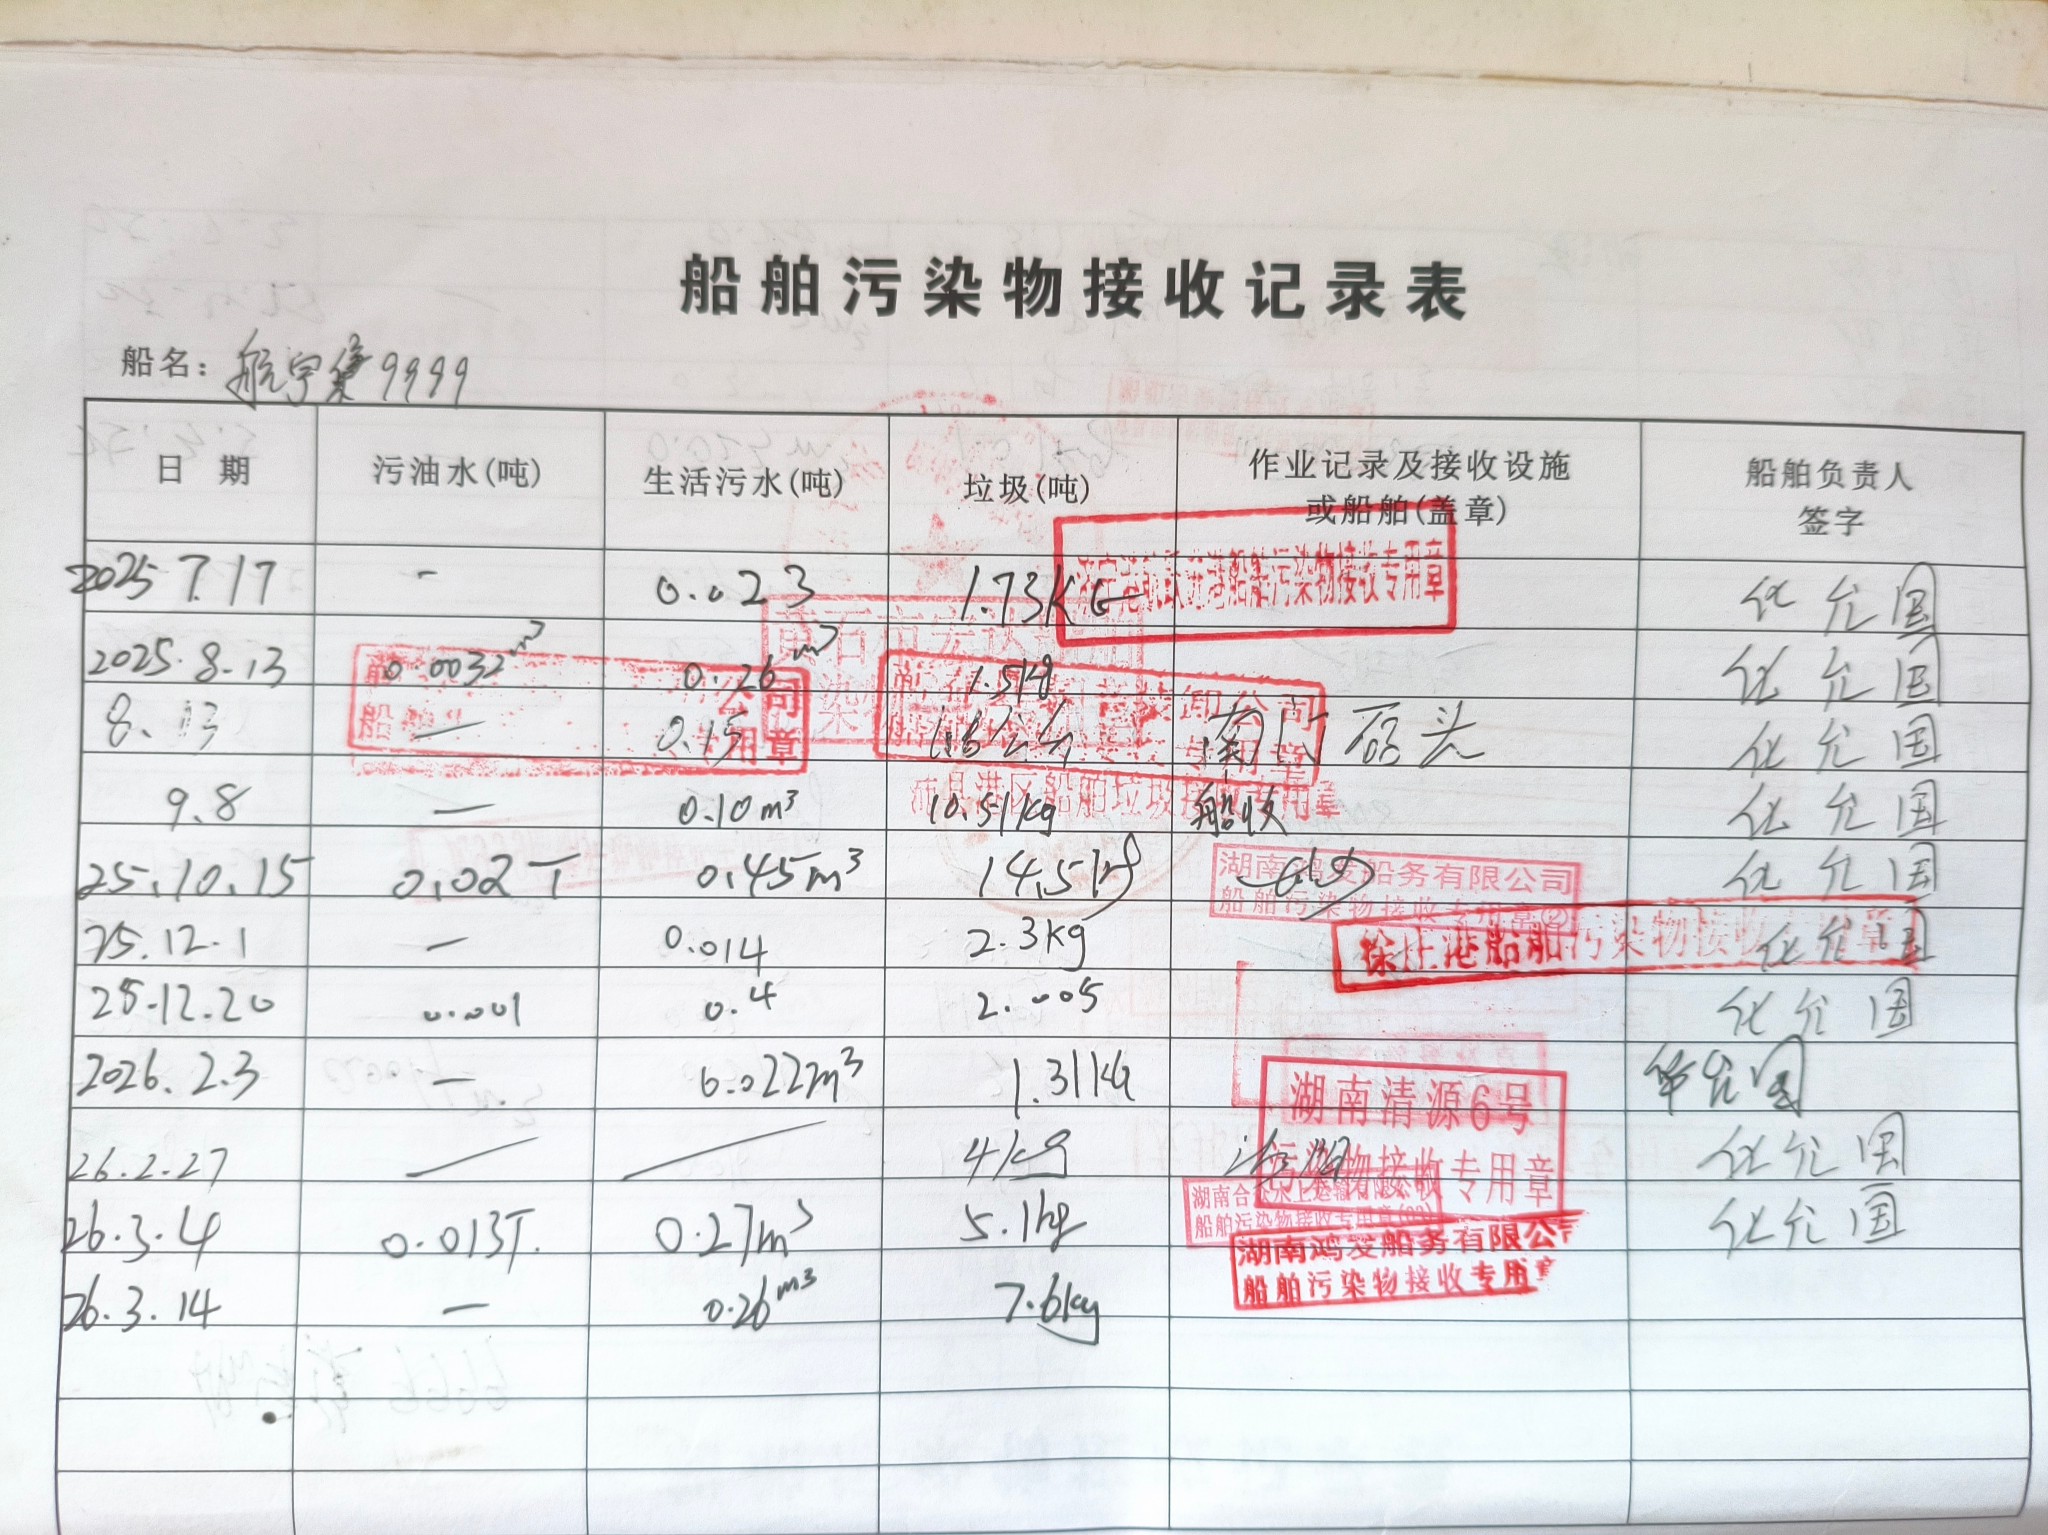 船舶污染物接收记录表
船名：航宇集9999
日 期 污油水(吨) 生活污水(吨) 垃圾(吨) 作业记录及接收设施或船舶(盖章) 船舶负责人签字
2025 7.17 - 0.023 1.73KG 船舶污染物接收专用章 化允国
2025.8.13 0.0032m³ 0.26m³ 1.5kg 化允国
8.13 — 0.15 南门码头 化允国
公司
船舶 用章
装卸公司
专用章
9.8 — 0.10m³ 10.51kg 船收 化允国
沛县港区船舶垃圾接收专用章
25.10.15 0.02T 0.45m³ 14.5kg 化允国
湖南鸿发船务有限公司
船舶污染物接收专用章②
25.12.1 — 0.014 2.3kg 化允国
船舶污染物接收专用章
25.12.20 0.001 0.4 2.005 化允国
2026.2.3 — 0.022m³ 1.31KG 华允国
湖南清源6号
污染物接收专用章
26.2.27 4kg 化允国
26.3.4 0.013T. 0.27m³ 5.1kg 化允国
船舶污染物接收专用章
湖南鸿发船务有限公司
船舶污染物接收专用章
26.3.14 — 0.26m³ 7.6kg